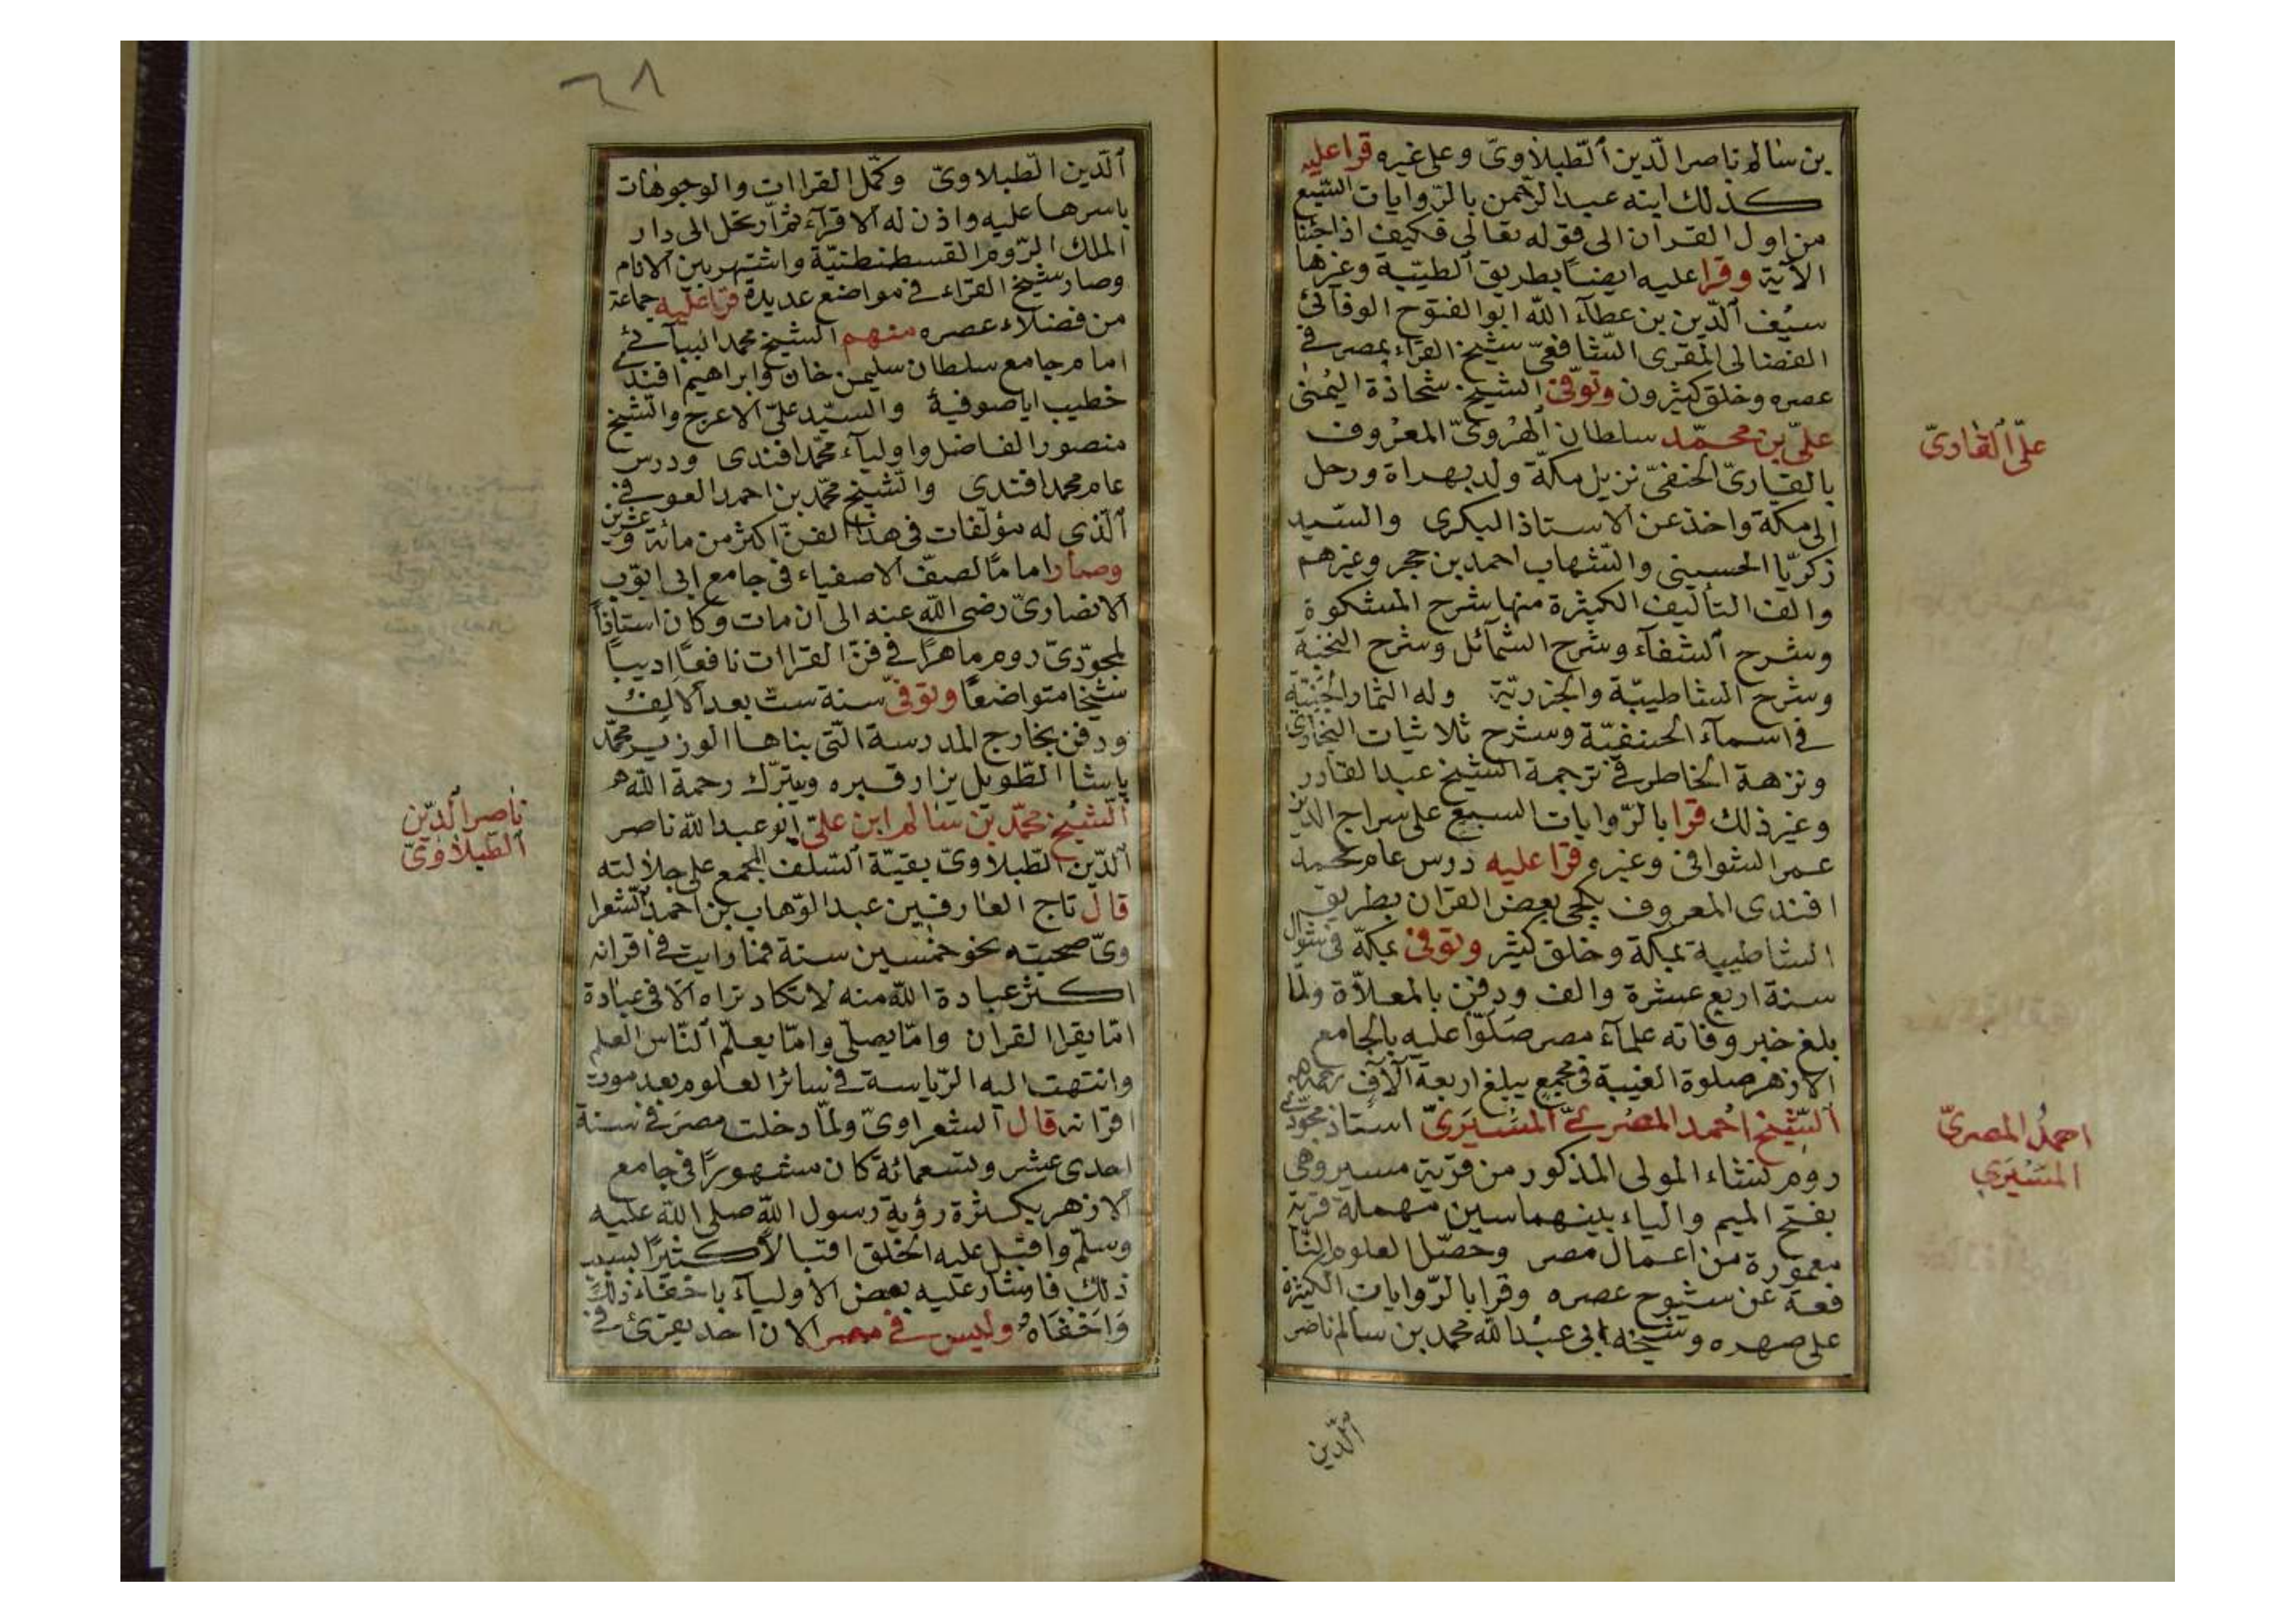 بن سالم ناصر الدّين الطّبلاوىّ وعلى غيره قرا عليه
كذلك ابنه عبد الرّحمن بالرّوايات السّبع
من اول القران الى قوله تعالى فكيف اذا جئنا
الآية وقرا عليه ايضاً بطريق الطيّبة وغيرها
سيف الدّين بن عطآء الله ابو الفتوح الوفآئى
الفضالى المقرى الشّافعىّ شيخ القرّاء بمصر فى
عصره وخلق كثيرون وتوفّى الشيخ شحاذة اليمنى
علىّ بن محمّد سلطان الهروىّ المعروف
علىّ القاوىّ
بالقارىّ الحنفىّ نزيل مكّة ولد بهراة ورحل
الى مكّة واخذ عن الاستاذ البكرى والسّيد
زكريّا الحسينى والشهاب احمد بن حجر وغيرهم
والف التأليف الكثيرة منها شرح المشكوة
وشرح الشفآء وشرح الشمآئل وشرح النخبة
وشرح الشاطبيّة والجزريّة وله الثمار الجنيّة
فى اسمآء الحنفيّة وشرح ثلاثيات البخارى
ونزهة الخاطر فى ترجمة الشيخ عبد القادر
وغير ذلك قرا بالرّوايات السبع على سراج الدين
عمر الشوافى وغيره وقرا عليه درس عام محمد
افندى المعروف بكچى بعض القران بطريق
الشاطبية بمكة وخلق كثير وتوفى بمكّة فى شوال
سنة اربع عشرة والف ودفن بالمعلاّة ولمّا
بلغ خبر وفاته علمآء مصر صلّوا عليه بالجامع
الازهر صلوة الغيبة فى مجمع يبلغ اربعة آلاف رحمه الله
الشّيخ احمد المصرىّ المسيرىّ استاذ مجوّدى
احمد المصرىّ
المسيرى
روم كنثاء المولى المذكور من قرية مسير وهى
بفتح الميم والياء بينهما سين مهملة قرية
معمورة من اعمال مصر وحصّل العلوم النّا
فعة عن شيوخ عصره وقرا بالرّوايات الكثيرة
على صهره وشيخه ابى عبد الله محمد بن سالم ناصر
الدّين
٦٨
الدّين الطّبلاوىّ وكمّل القراات والوجوهات
باسرها عليه واذن له الاقرآء ثمّ ارتحل الى دار
الملك الرّوم القسطنطنيّة واشتهر بين الانام
وصار شيخ القراء فى مواضع عديدة قرا عليه جماعة
من فضلاء عصره منهم الشيخ محمد البيآئى
امام جامع سلطان سليمن خان وابراهيم افندى
خطيب اياصوفية والسيّد علىّ الاعرج والشيخ
منصور الفاضل واوليآء محمّد افندى ودرس
عام محمد افندى والشيخ محمّد بن احمد العوفى
الّذى له مؤلفات فى هذا الفن اكثر من مائة وعشرين
وصار اماماً لصفّ الاصفياء فى جامع ابى ايّوب
الانصارىّ رضى الله عنه الى ان مات وكان استاذاً
لمجوّدىّ روم ماهراً فى فنّ القراات نافعاً اديباً
شيخا متواضعاً وتوفّى سنة ستّ بعد الالف
ودفن بخارج المدرسة الّتى بناها الوزير محمّد
پاشا الطّويل يزار قبره ويتبرّك رحمة الله
الشّيخ محمّد بن سالم ابن علىّ ابو عبد الله ناصر
ناصر الدّين
الطّبلاوىّ
الدّين الطّبلاوىّ بقيّة السّلف المجمع على جلالته
قال تاج العارفين عبد الوّهاب بن احمد الشعرا
وىّ صحبته نحو خمسين سنة فما رايت فى اقرانه
اكثر عبادة الله منه لا تكاد تراه الّا فى عبادة
امّا يقرا القران وامّا يصلّى وامّا يعلّم النّاس العلم
وانتهت اليه الرّياسة فى سائر العلوم بعد موت
اقرانه قال الشعراوىّ ولمّا دخلت مصر فى سنة
احدى عشر وتسعمائة كان مشهوراً فى جامع
الازهر بكثرة رؤية رسول الله صلى الله عليه
وسلّم واقبل عليه الخلق اقبالاً كثيراً بسبب
ذلك فاشار عليه بعض الاوليآء باخفاء ذلك
واخفاه وليس فى مصر الان احد يقرئ فى